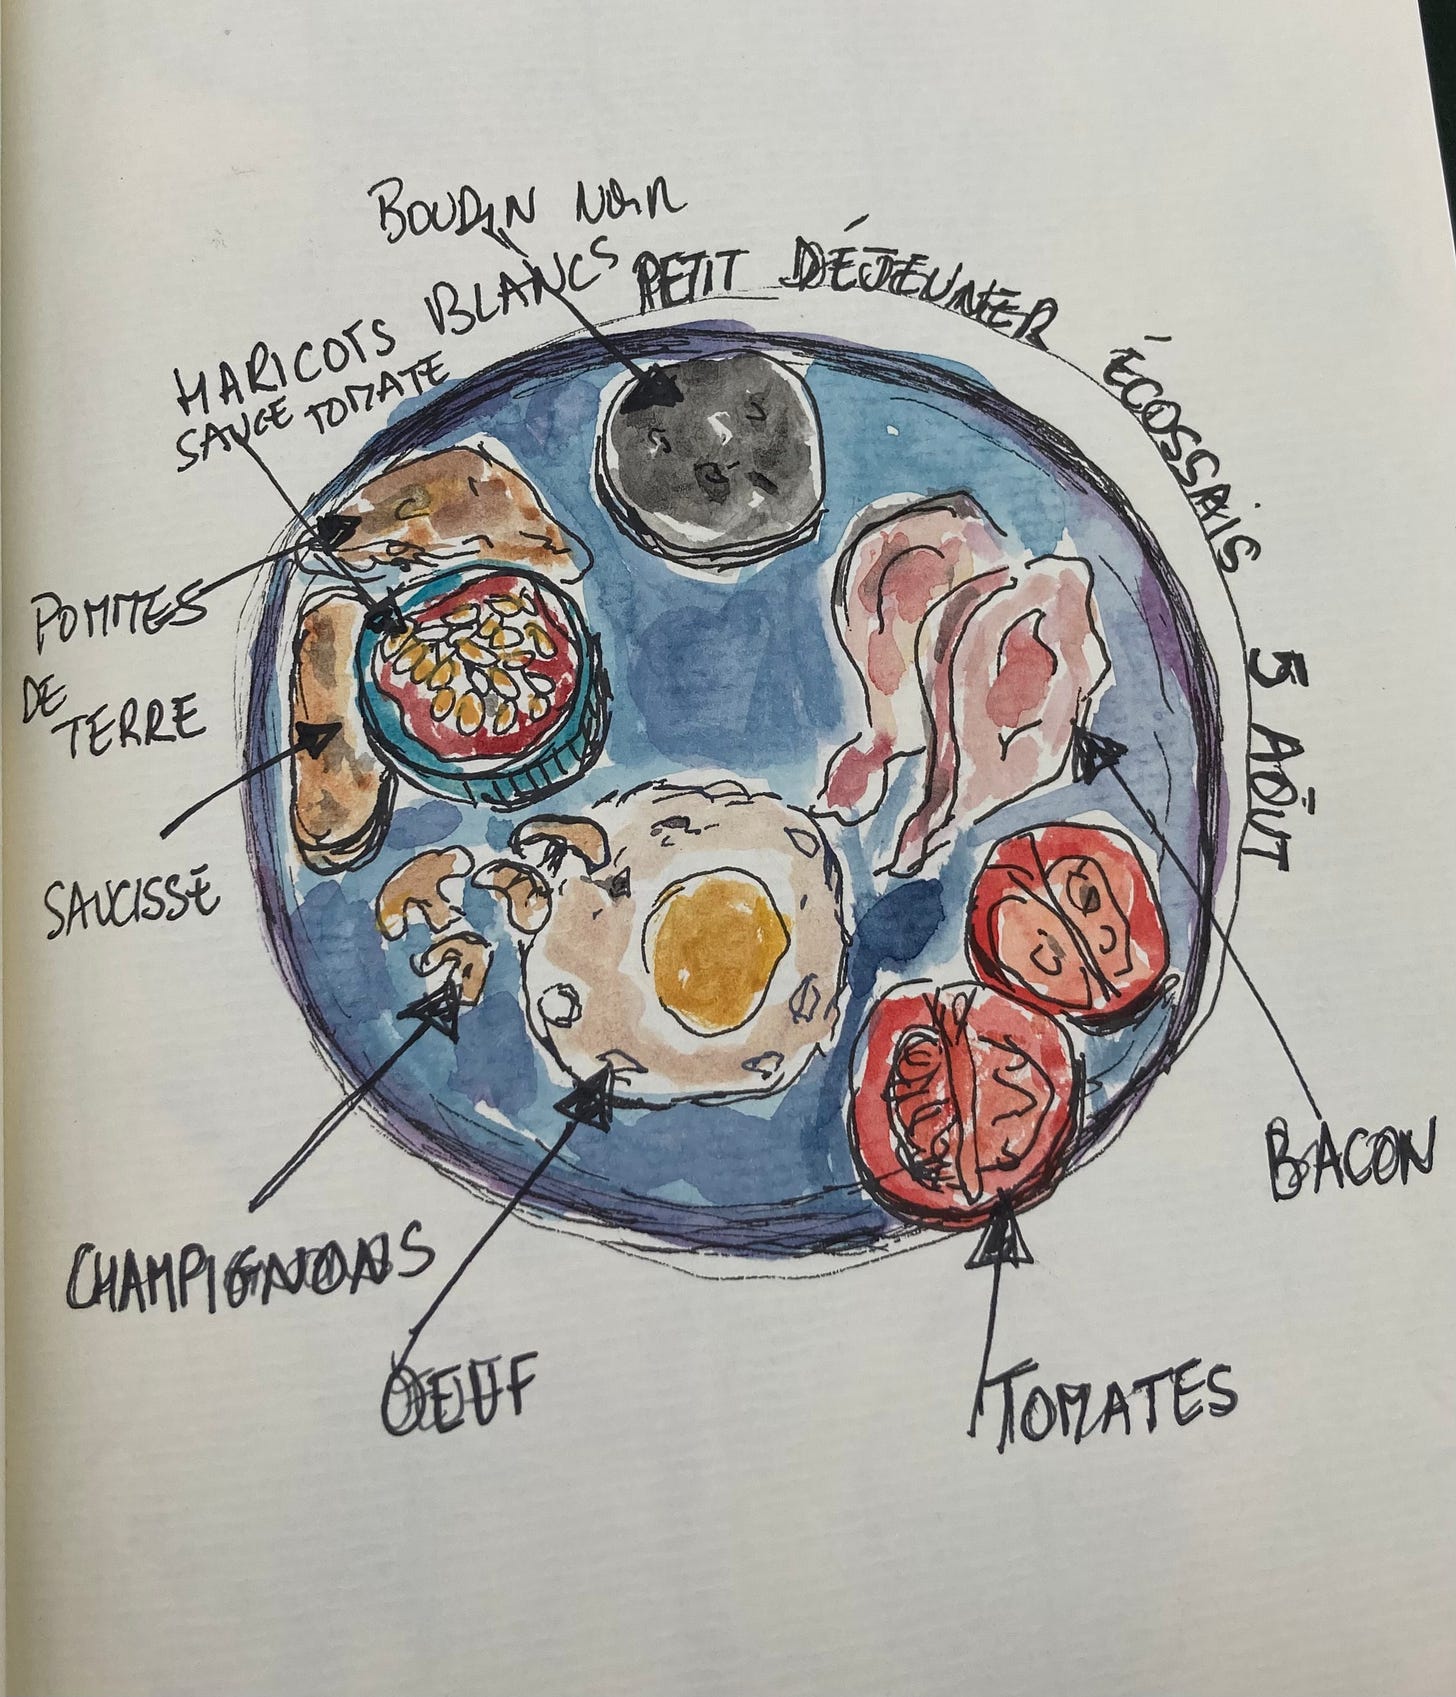 BOUDIN NOIR
PETIT DÉJEUNER ÉCOSSAIS 5 AOÛT
HARICOTS BLANCS
SAUCE TOMATE
POMMES
DE
TERRE
SAUCISSE
BACON
CHAMPIGNONS
OEUF
TOMATES